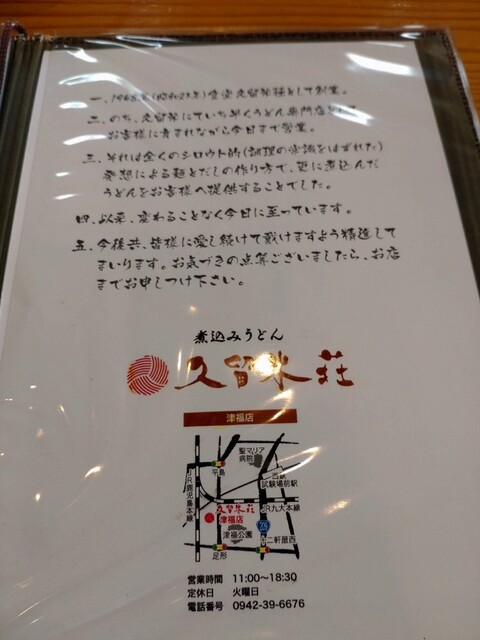 一、1948年(昭和23年)食堂久留米荘として創業。
二、のち、久留米にていち早くうどん専門店として
お客様に育まれながら今日まで営業。
三、それは全くのシロウト的(調理の常識をはずれた)
発想による麺とだしの作り方で、更に煮込んだ
うどんをお客様へ提供することでした。
四、以来、変わることなく今日に至っています。
五、今後共、皆様に愛し続けて戴けますよう精進して
まいります。お気づきの点等ございましたら、お店
までお申しつけ下さい。
煮込みうどん
久留米荘
津福店
聖マリア
病院
平島
西鉄
試験場前駅
JR鹿児島本線
JR九大本線
久留米荘
津福店
津福公園
足形
二軒屋西
営業時間 11:00〜18:30
定休日 火曜日
電話番号 0942-39-6676